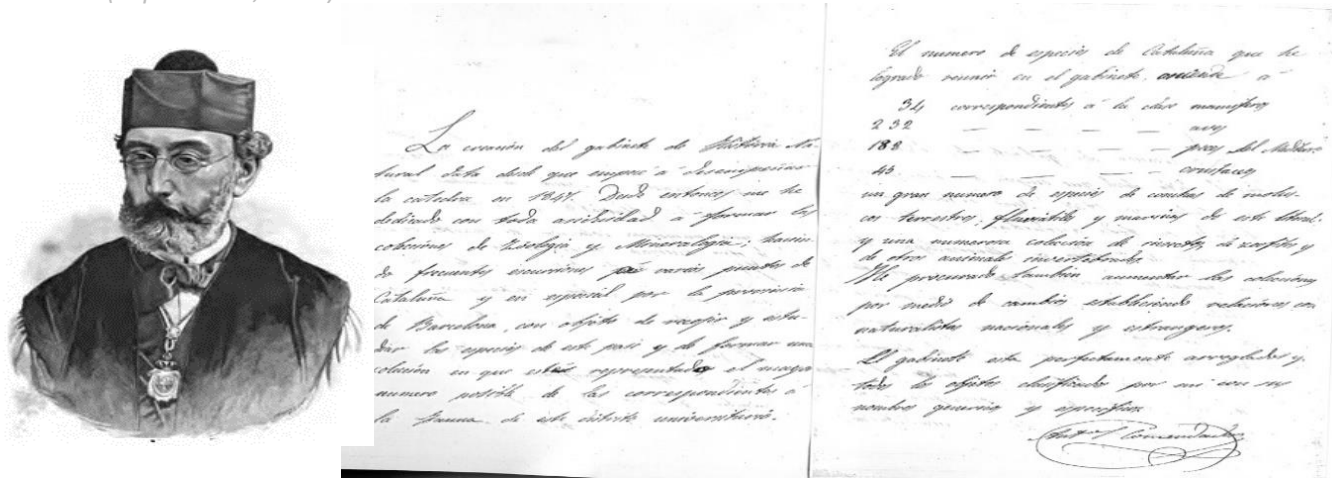 La creación del gabinete de Historia Na-
tural data desde que empecé á desempeñar
la catedra en 1847. Desde entonces me he
dedicado con toda actividad á formar las
colecciones de Zoologia y Mineralogia; hacien-
do frecuentes escursiones por varios puntos de
Cataluña y en especial por la provincia
de Barcelona, con objeto de recoger y estu-
diar las especies de este pais y de formar una
coleccion en que esten representadas el mayor
numero posible de las correspondientes á
la Fauna de este distrito universitario.
El numero de especies de Cataluña que he
logrado reunir en el gabinete, asciende á
34 correspondientes á la clase mamiferos
232 — — — — aves
188 — — — — peces del Mediterr
43 — — — — crustaceos
un gran numero de especies de conchas de molus-
cos terrestres, fluviatiles y marinos de este litoral:
y una numerosa coleccion de insectos, de zoofitos y
de otros animales invertebrados.
He procurado tambien aumentar las colecciones
por medio de cambios estableciendo relaciones con
naturalistas nacionales y estrangeros.
El gabinete esta perfectamente arreglado y
todos los objetos clasificados por mi con sus
nombres genericos y especificos